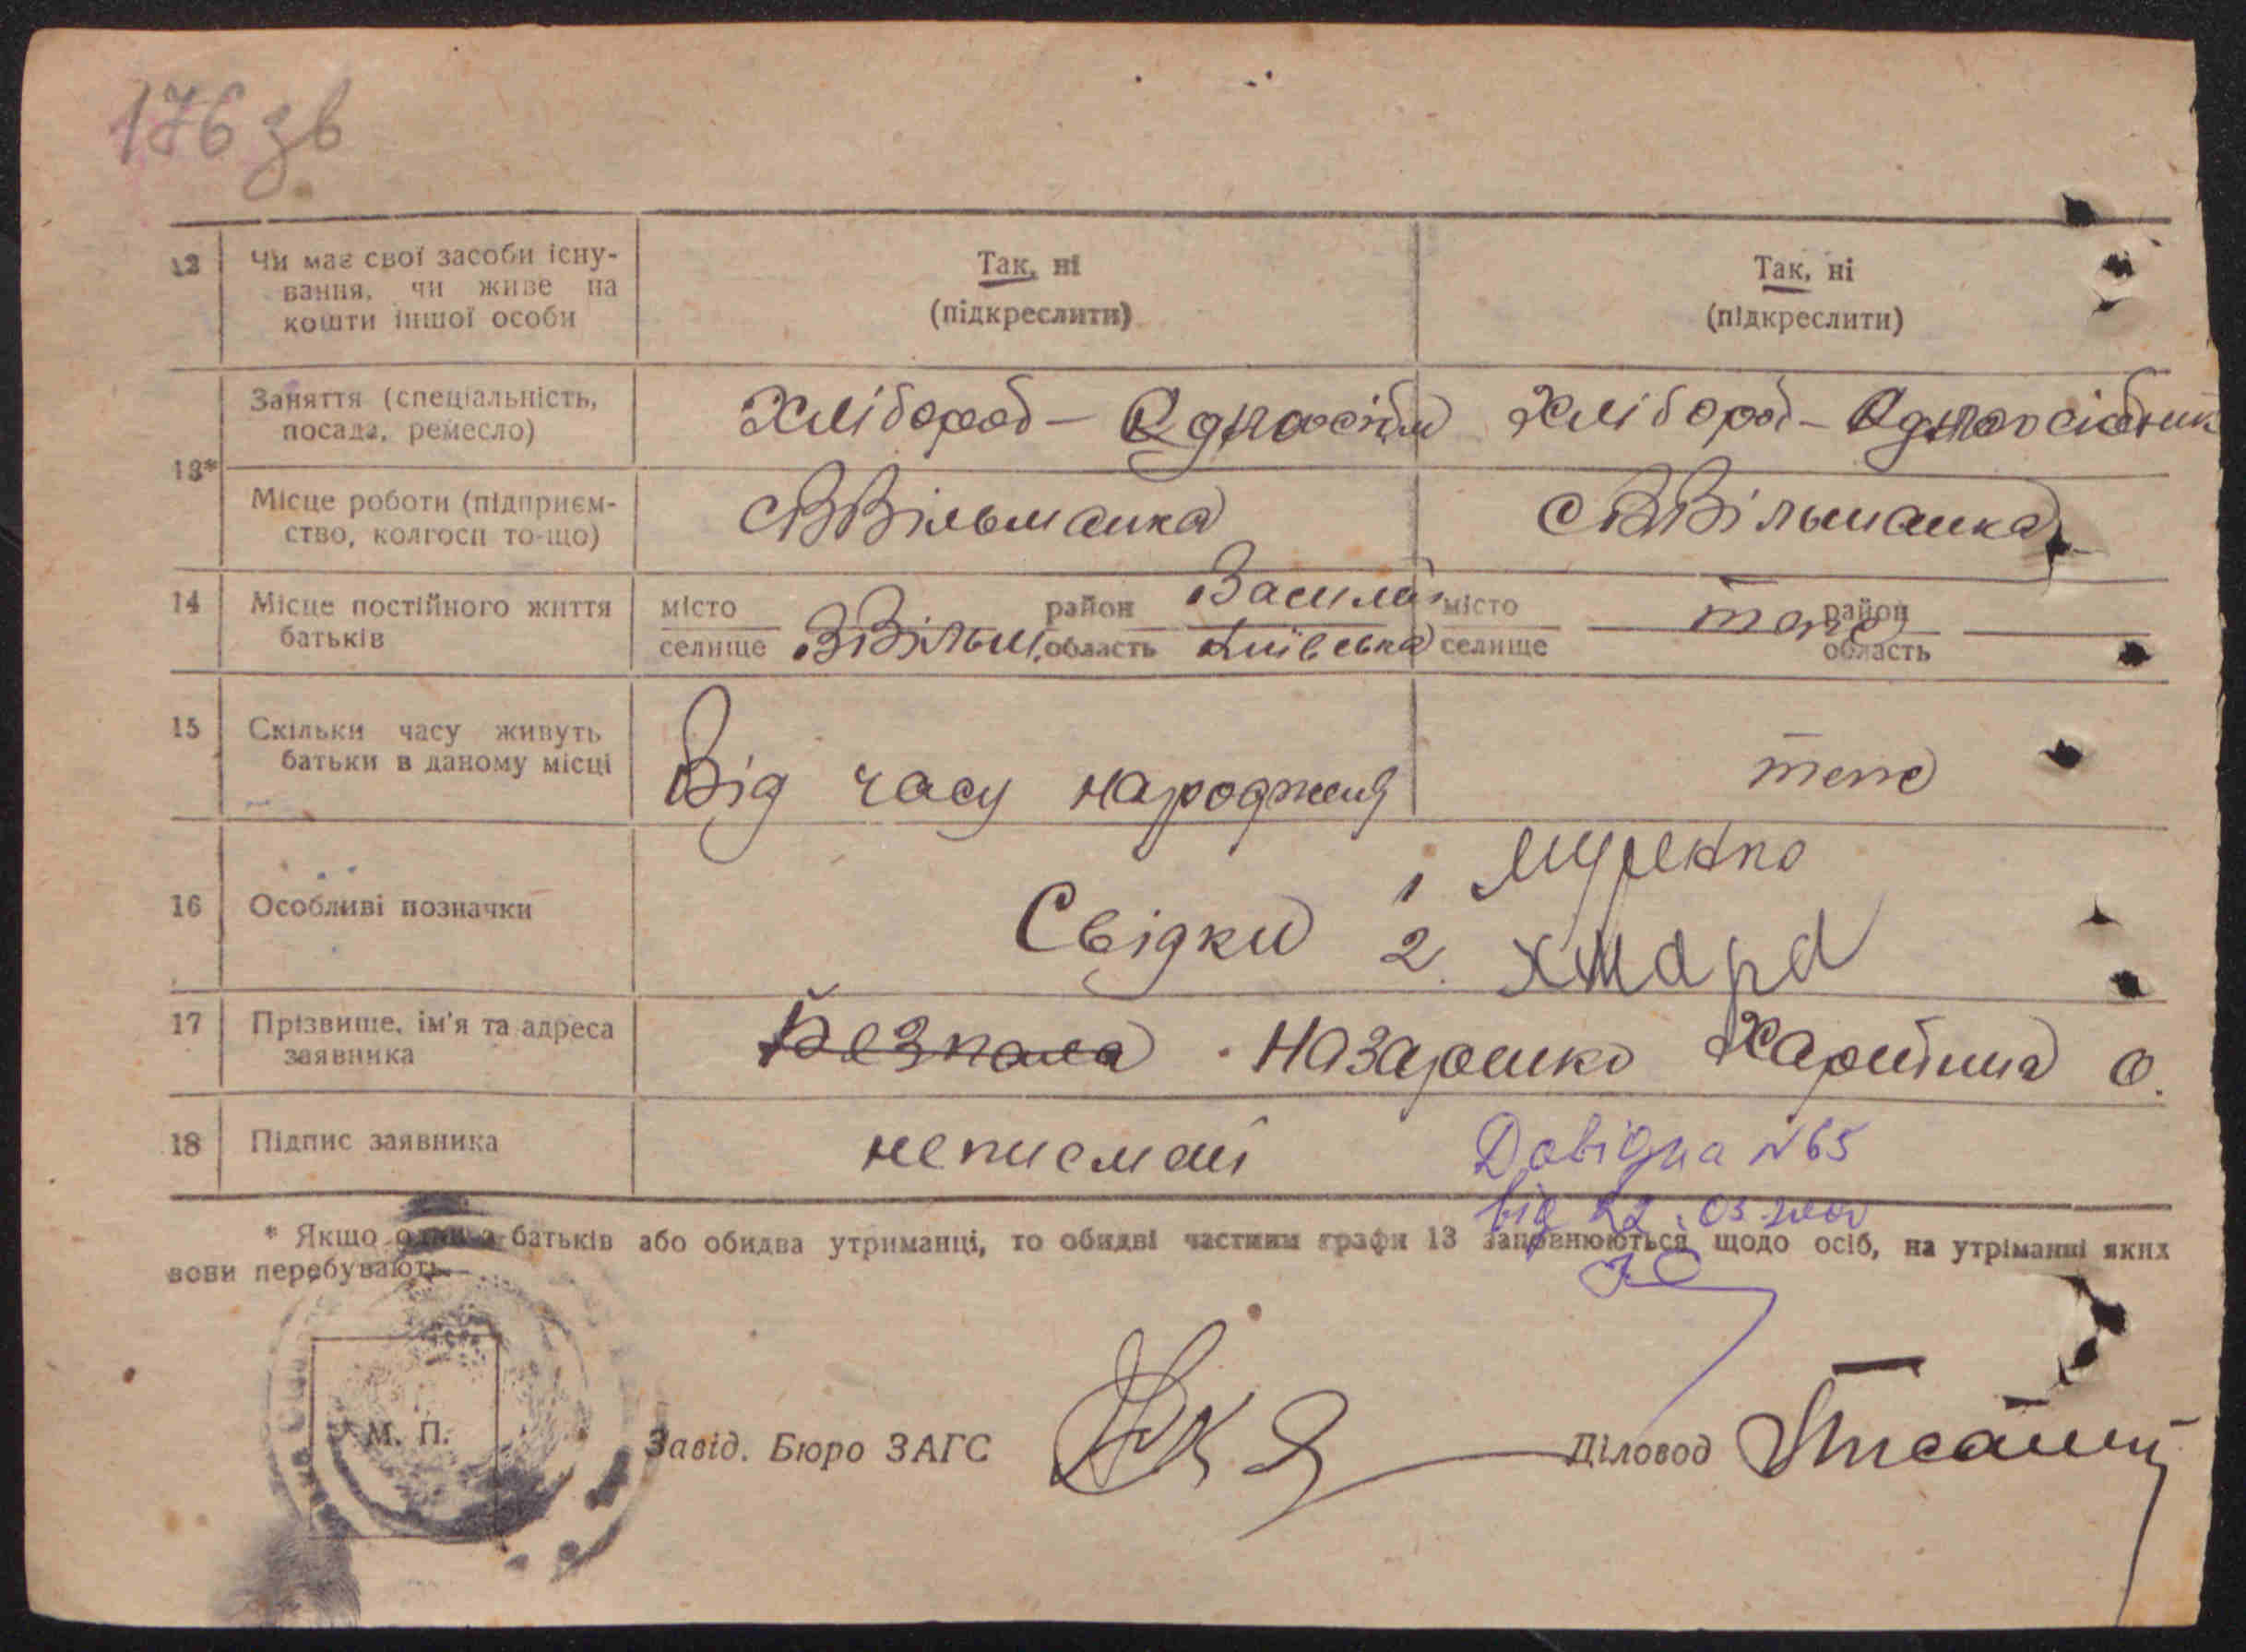 176 зв
12 Чи має свої засоби існу-
вання, чи живе на
кошти іншої особи
Так, ні
(підкреслити)
Так, ні
(підкреслити)
13*
Заняття (спеціальність,
посада, ремесло)
Хлібороб - Одноосібн
Хлібороб - Одноосібник
Місце роботи (підприєм-
ство, колгосп то-що)
с ВВільшанка
с ВВільшанка
14 Місце постійного життя
батьків
місто
селище
ВВільш.
район
область
Васильк
Київська
місто
селище
район
область
15 Скільки часу живуть
батьки в даному місці
Від часу народження
теж
16 Особливі позначки
Свідки 1
2. Хмара
17 Прізвище, ім'я та адреса
заявника
Назаренко Харитина О.
18 Підпис заявника
неписмені
Довідка N 65
від 22.03.2000
* Якщо один з батьків або обидва утриманці, то обидві частини графи 13 заповнюються щодо осіб, на утріманні яких
вони перебувають.
М. П.
Завід. Бюро ЗАГС
Діловод